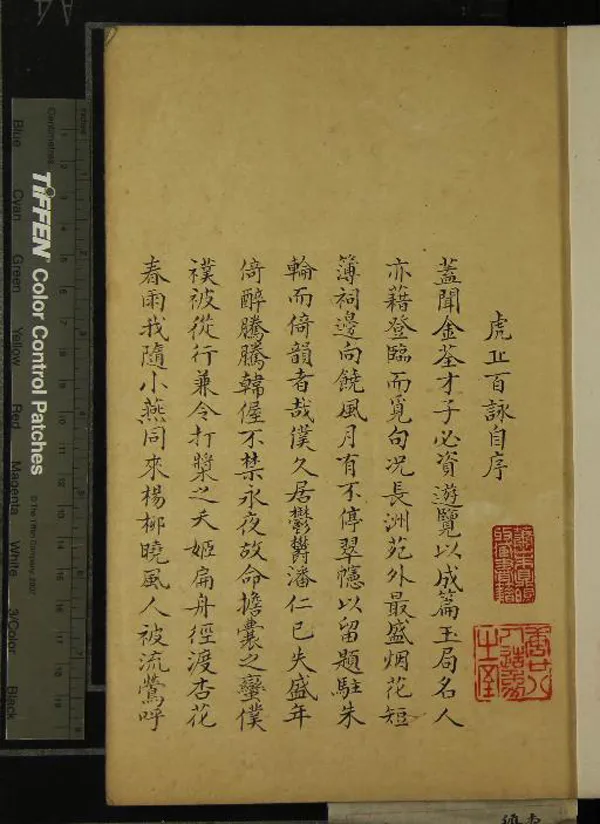 虎丘百詠自序
蓋聞金荃才子必資遊覽以成篇玉局名人
亦藉登臨而覓句况長洲苑外最盛烟花短
簿祠邊向饒風月有不停翠幰以留題駐朱
輪而倚韻者哉僕久居鬱鬱潘仁已失盛年
倚醉騰騰韓偓不禁永夜故命擔囊之蠻僕
襆被從行兼令打槳之夭姬扁舟徑渡杏花
春雨我隨小燕同來楊柳曉風人被流鶯呼
A4
TIFFEN Color Control Patches
© The Tiffen Company, 2007
Centimetres
Inches
Blue
Cyan
Green
Yellow
Red
Magenta
White
3/Color
Black